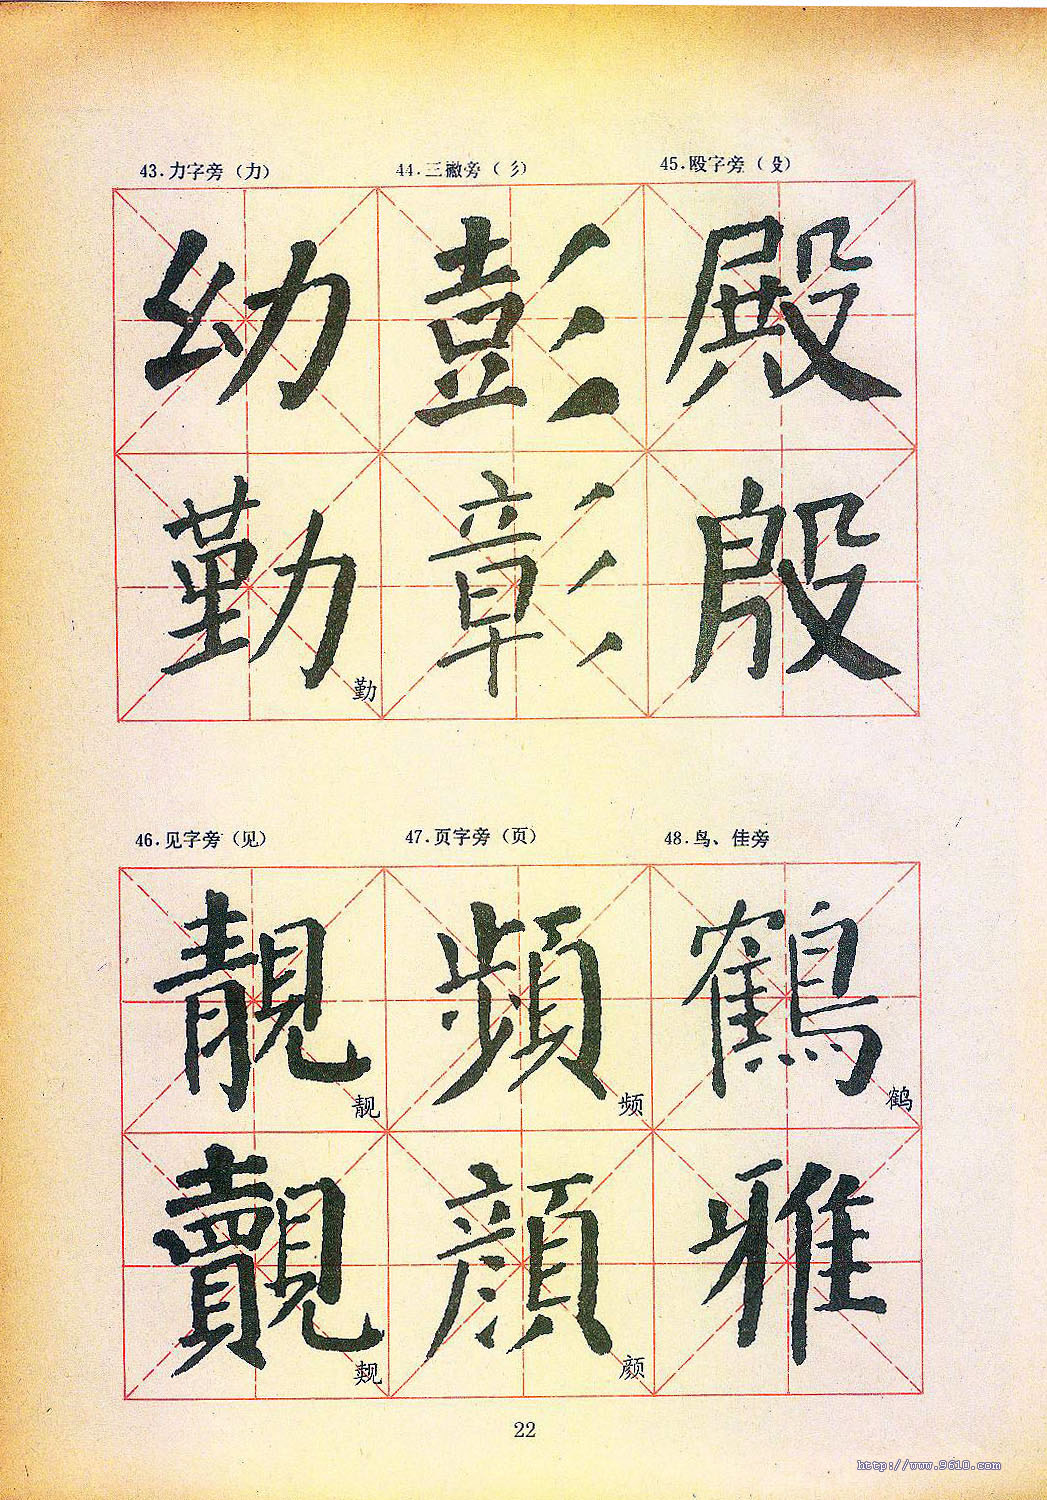 43.力字旁（力） 44.三撇旁（彡） 45.殴字旁（殳）
幼 彭 殿
勤 彰 殷
勤
46.见字旁（见） 47.页字旁（页） 48.鸟、佳旁
靚 頻 鶴
靓 频 鹤
覿 顔 雅
觌 颜
22
http://www.9610.com